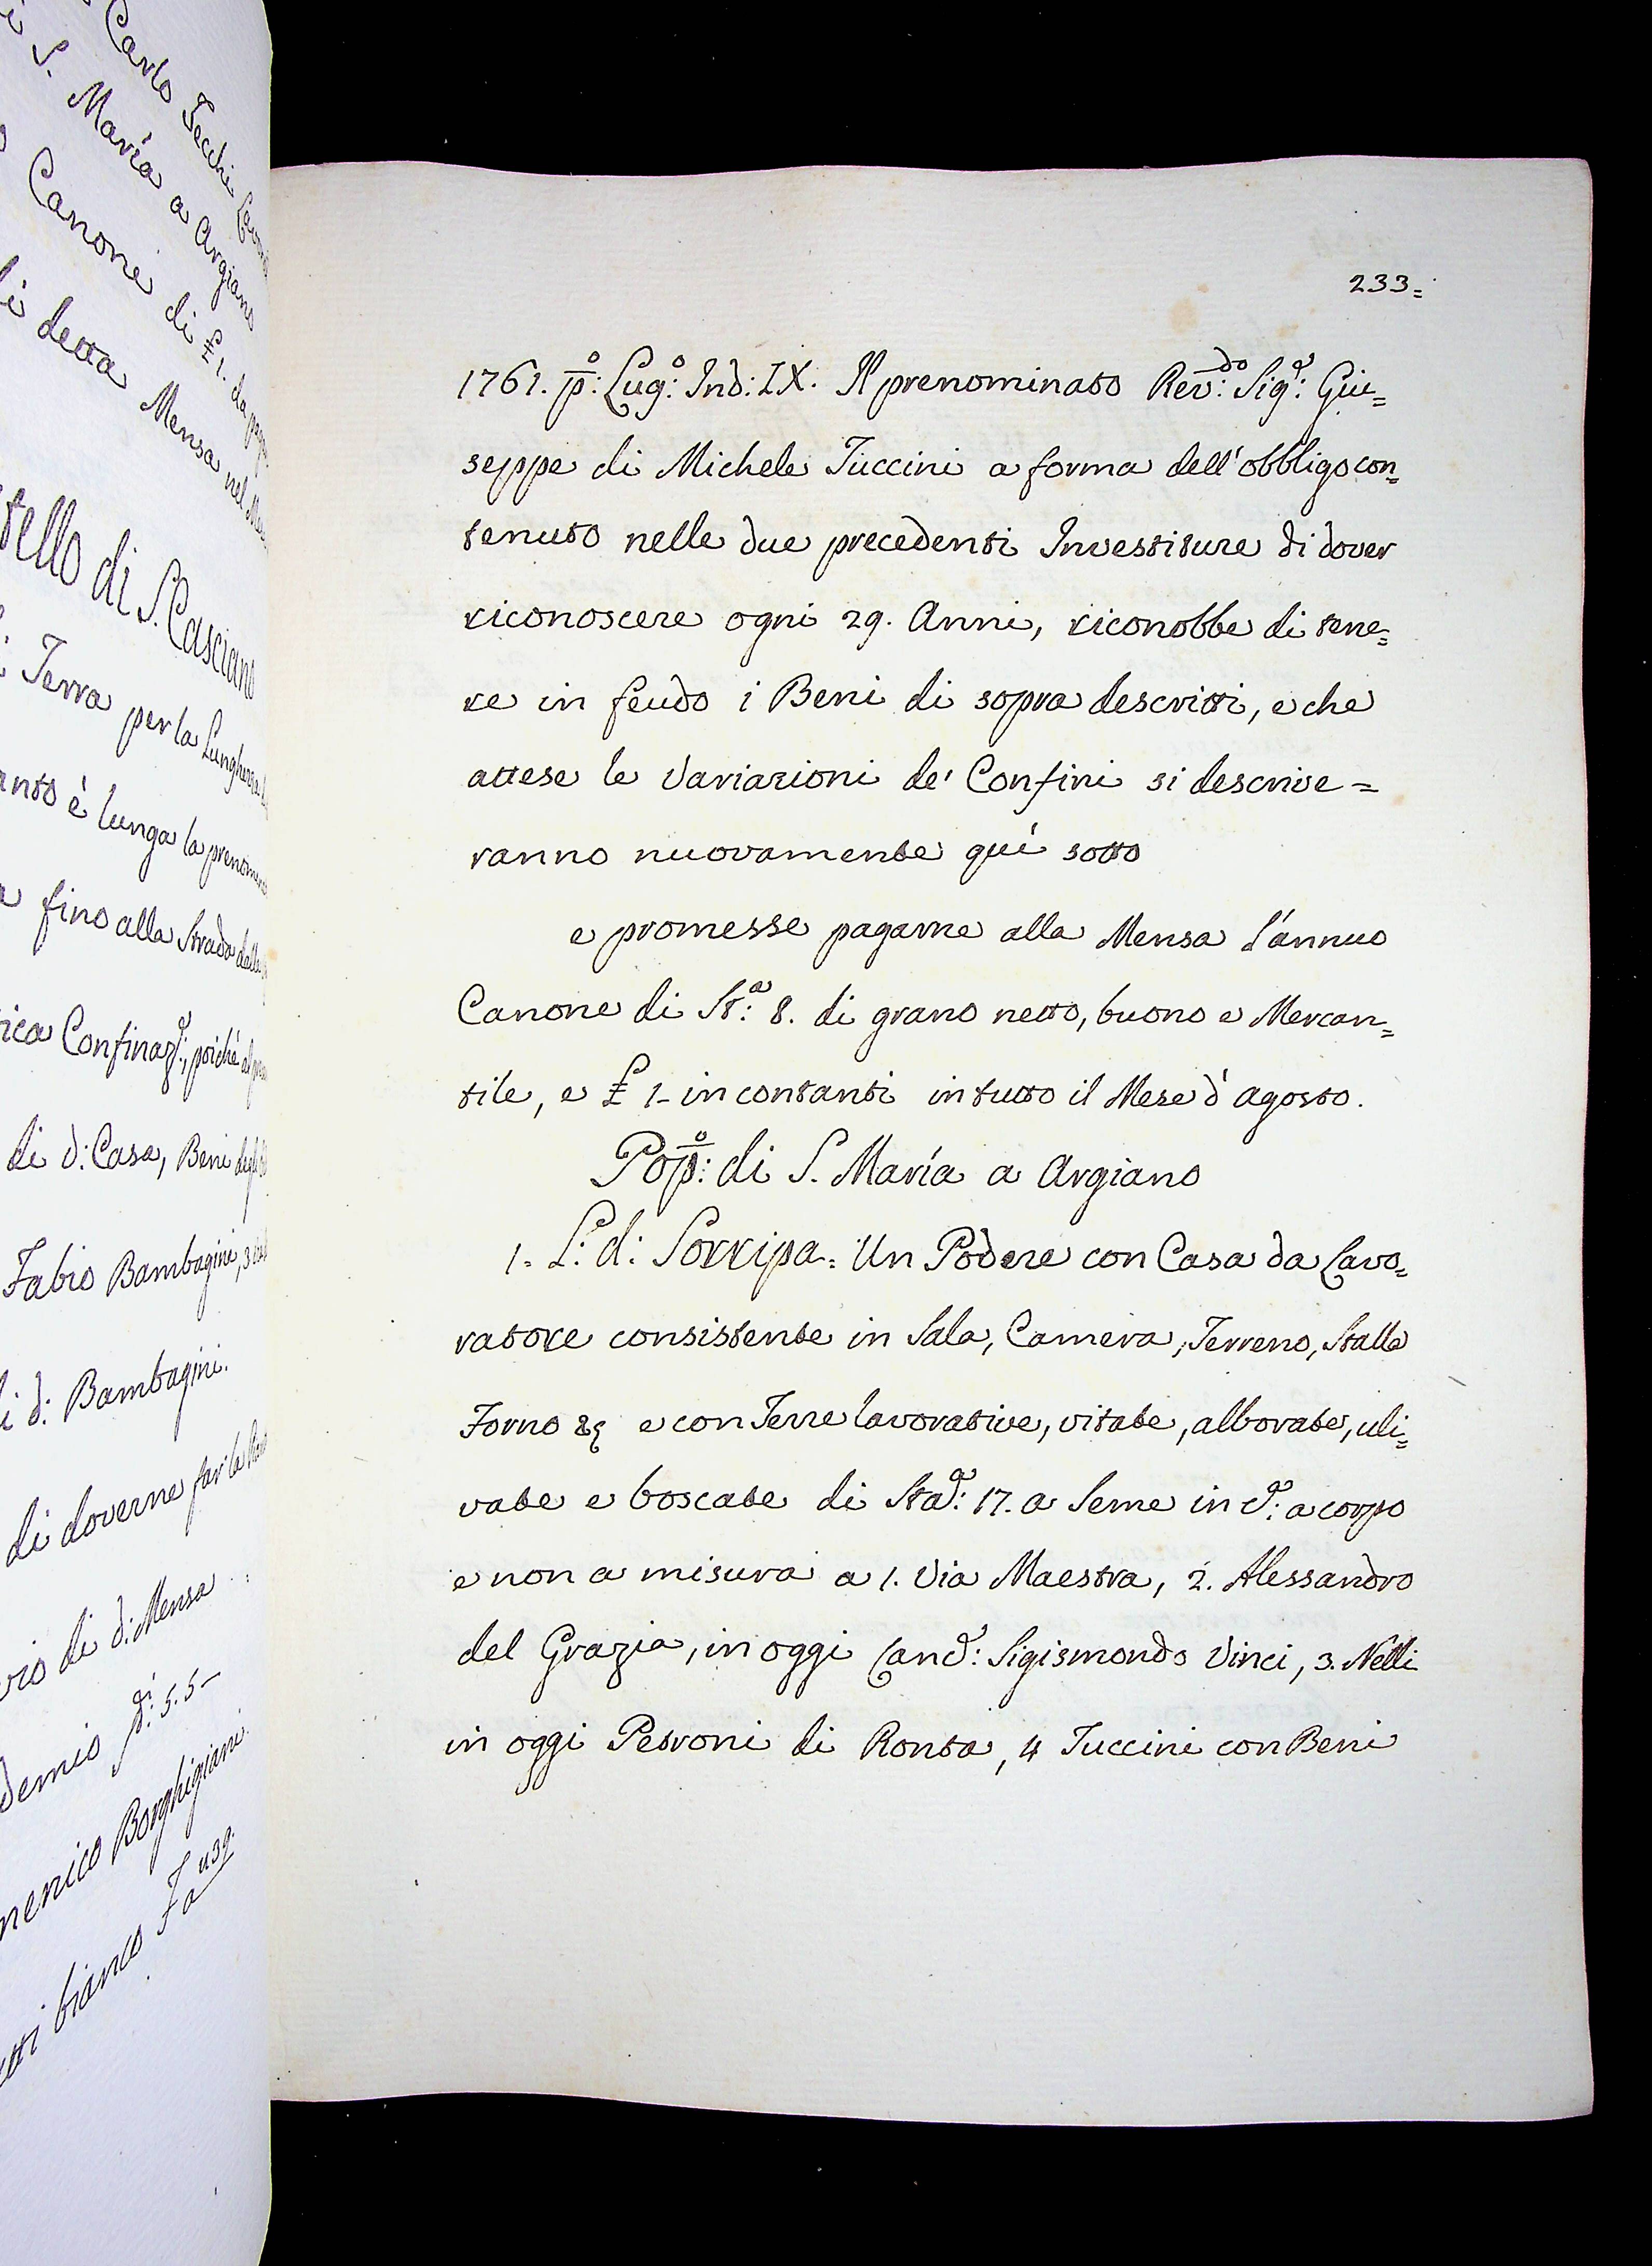 Carlo Tecchi
i S. María a Argiano
Canone di £ 1. da
di detta Mensa nel
tello di S. Casciano
Terra per la Lunghezza
anto è lunga la prenomin
a fino alla Strada dalla
ica Confinaz.e:, poiché al
di d: Casa, Beni degl
Fabio Bambagini, 3
i d: Bambagini.
di doverne far la
rio di d: Mensa
demio di: 5. 5 -
menico Borghigiani
tti bianco Fa u39.
233=
1761. p:o Lug:o Ind: IX. Il prenominato Rev:do Sig:e Giu=
seppe di Michele Tuccini a forma dell'obbligo con=
tenuto nelle due precedenti Investiture di dover
riconoscere ogni 29. Anni, riconobbe di tene=
re in feudo i Beni di sopra descritti, e che
attese le Variazioni de' Confini si descrive=
ranno nuovamente quí sotto
e promesse pagarne alla Mensa l'ánnuo
Canone di St:a 8. di grano netto, buono e Mercan=
tile, e £ 1- in contanti in tutto il Mese d'agosto.
Pop:o di S. María a Argiano
1. L: d: Sorripa= Un Podere con Casa da Lavo=
ratore consistente in Sala, Camera, Terreno, Stalla
Forno &c e con Terre lavorative, vitate, alborate, uli=
vate e boscate di Sta:a 17. a Seme in c:a a corpo
e non a misura a 1. Via Maestra, 2. Alessandro
del Grazia, in oggi Canc:e Sigismondo Vinci, 3. Nelli
in oggi Petroni di Ronta, 4 Tuccini con Beni